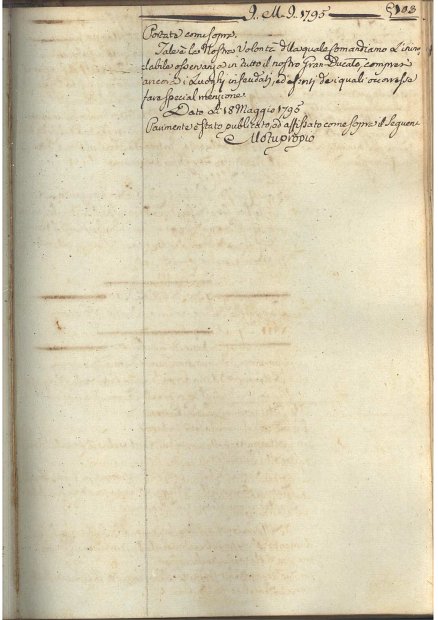 J. M. J. 1795
Portata come sopra.
Tale è la Nostra Volontà della quale Comandiamo l'invio
labile osservanza in tutto il nostro Gran-Ducato, compresi
ancora i Luoghi infeudati, ed esenti de i quali occorresse
fare special menzione.
Dato li 18 Maggio 1795
Parimente è stato publicato, ed affissato come sopra il seguen
Motuproprio